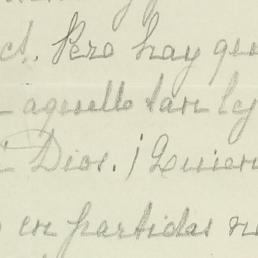 Pero hay que
aquello tan le
Dios. ¡ Quien
en partidas